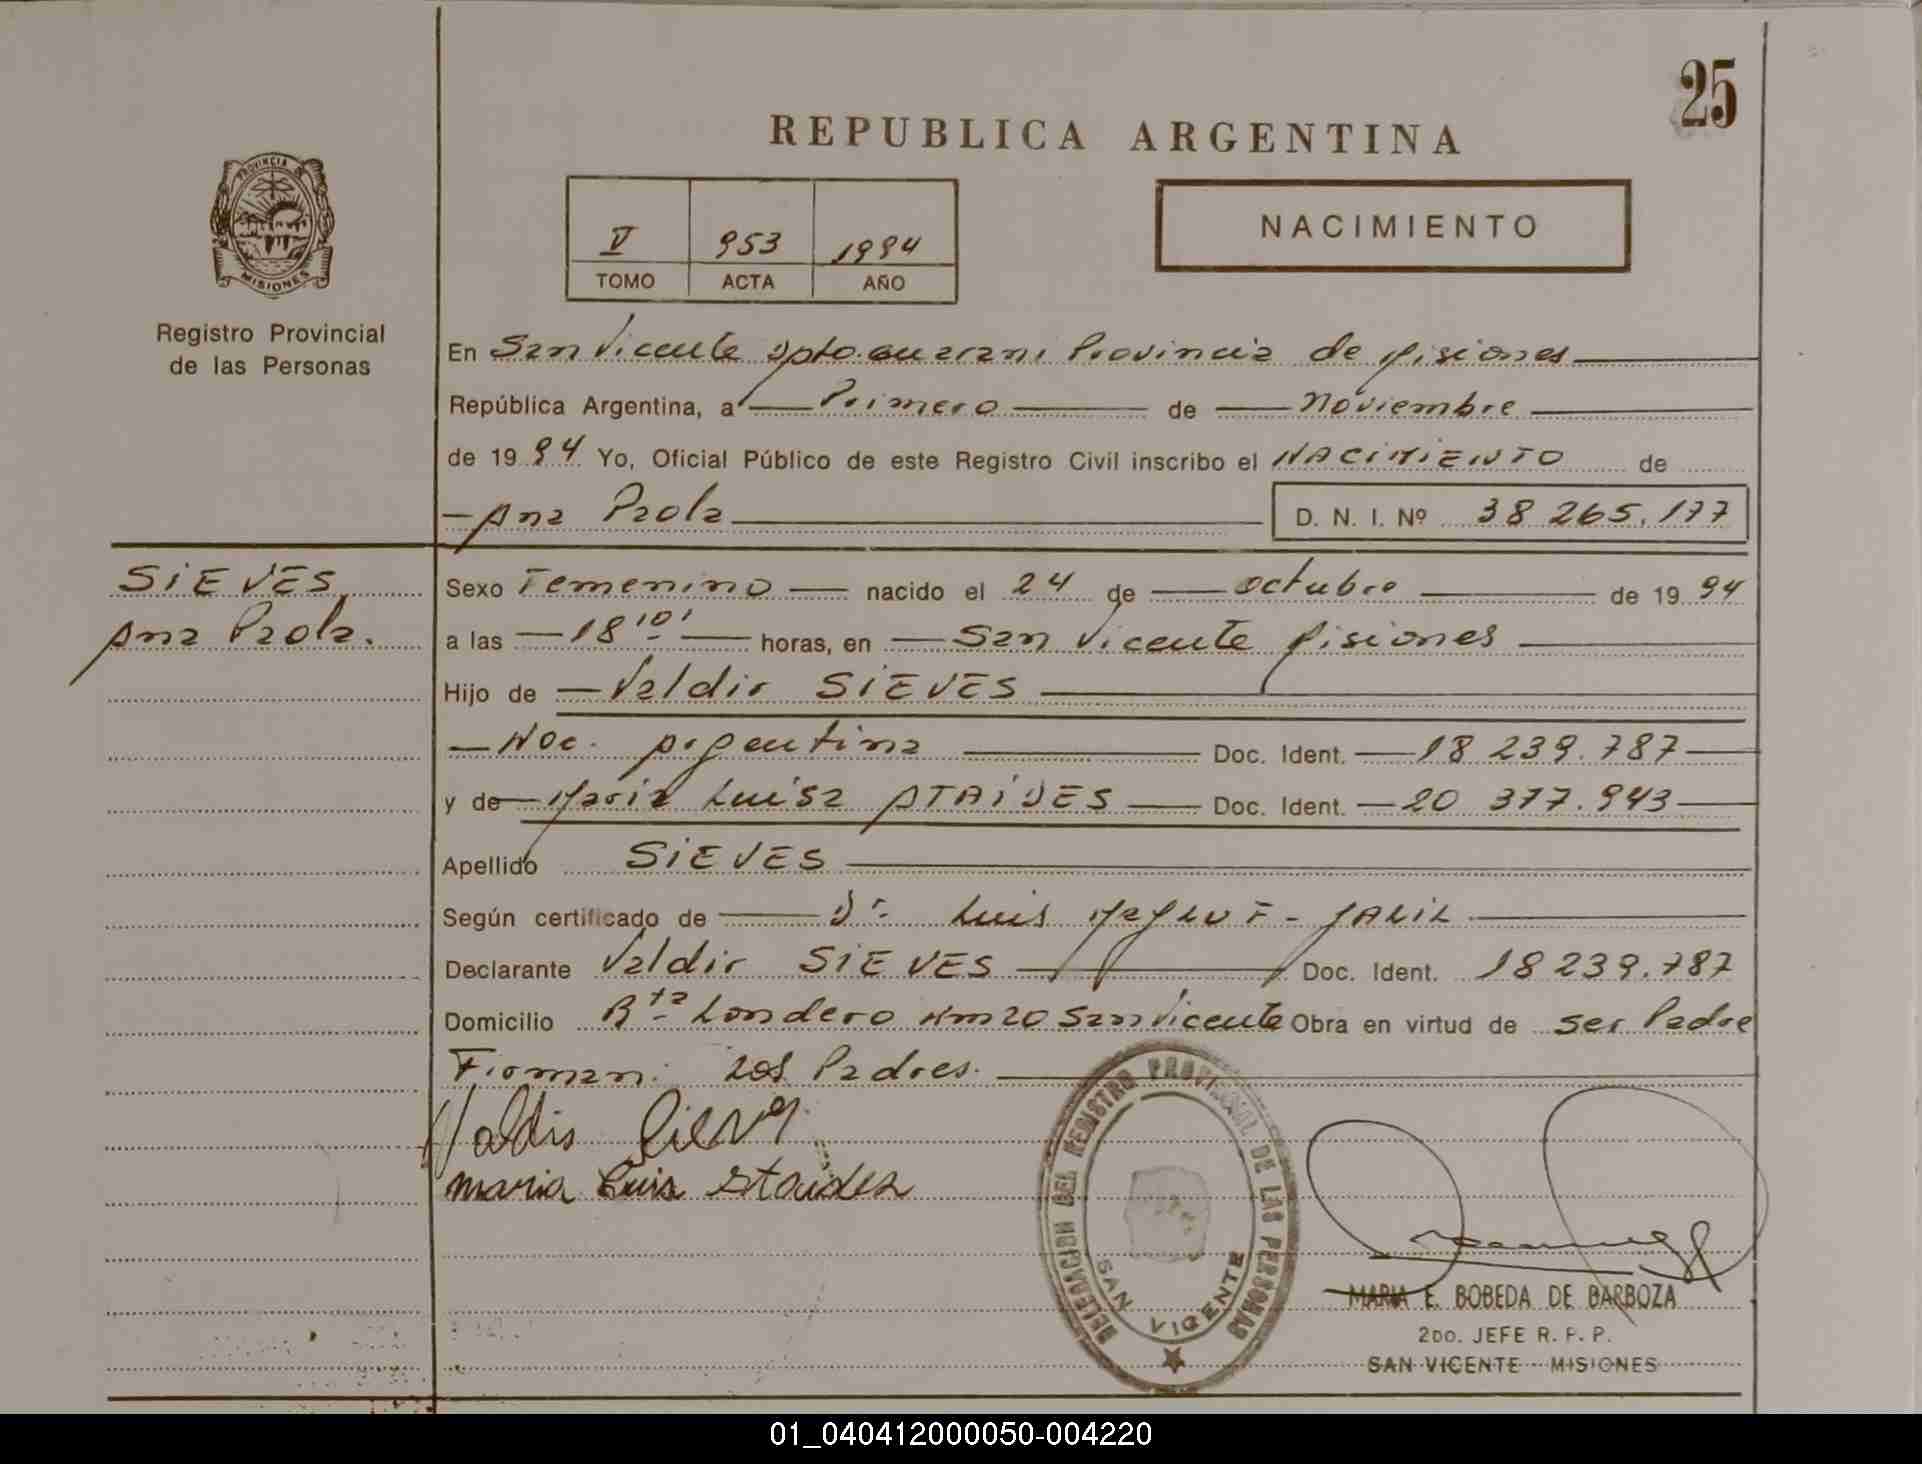 25
REPUBLICA ARGENTINA
PROVINCIA DE
MISIONES
Registro Provincial
de las Personas
V 953 1994
TOMO ACTA AÑO
NACIMIENTO
En San Vicente Dpto. Guarani Provincia de Misiones
República Argentina, a Primero de Noviembre
de 1994 Yo, Oficial Público de este Registro Civil inscribo el NACIMIENTO de
Ana Paola D. N. I. Nº 38 265.177
SIEVES
Ana Paola.
Sexo Femenino nacido el 24 de octubre de 1994
a las 18'10' horas, en San Vicente Misiones
Hijo de Valdir SIEVES
Nac. Argentina Doc. Ident. 18 239.787
y de Maria Luisa ATAIDES Doc. Ident. 20 377.943
Apellido SIEVES
Según certificado de Dr. Luis F. JALIL
Declarante Valdir SIEVES Doc. Ident. 18 239.787
Domicilio Rta Londero Km 20 San Vicente Obra en virtud de ser Padre
Firman: Los Padres.
Valdir Sieves
maria Luisa Ataides
DELEGACION DEL REGISTRO PROVINCIAL DE LAS PERSONAS
SAN VICENTE
MARIA E. BOBEDA DE BARBOZA
2DO. JEFE R. P. P.
SAN VICENTE - MISIONES
01_040412000050-004220